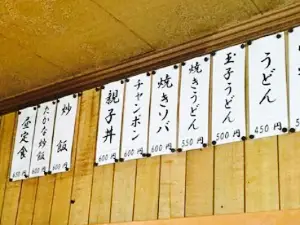 うどん
450円
玉子うどん
500円
焼きうどん
550円
焼きソバ
600円
チャンポン
600円
親子丼
600円
炒飯
たかな炒飯
定食